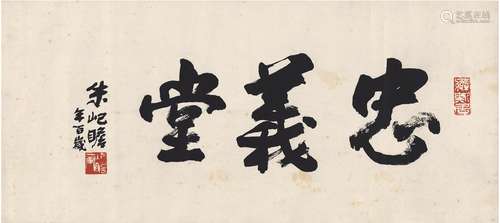 忠義堂
朱屺瞻
年百歲